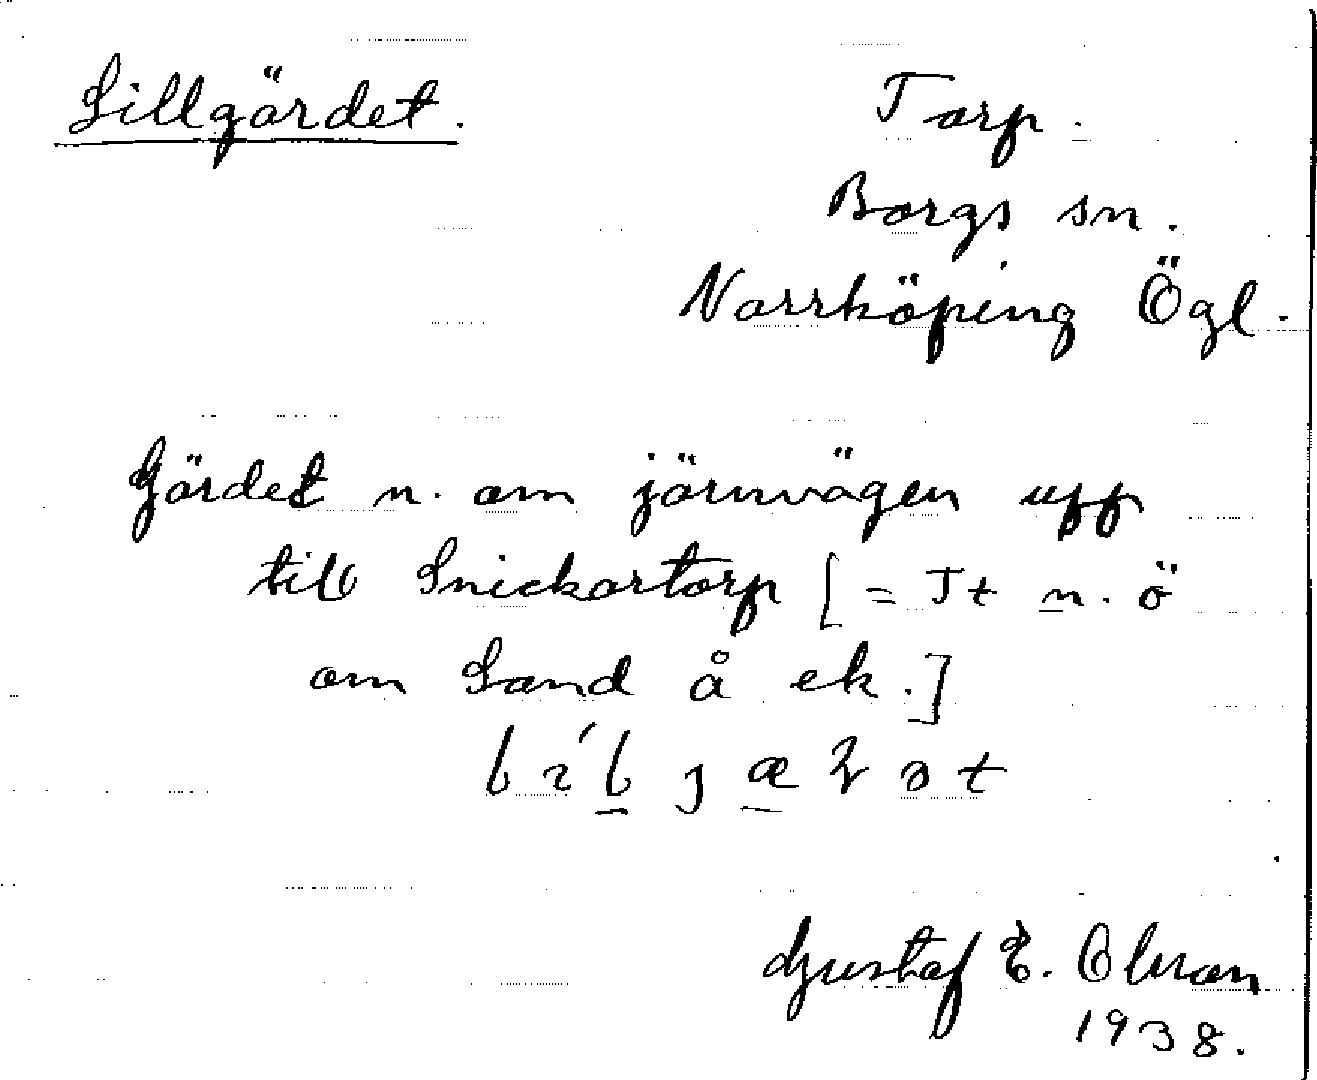 Lillgärdet.
Torp.
Borgs sn.
Norrköping Ögl.
Gärdet n. om järnvägen upp
till Snickartorp [= Tt n. ö
om Sand å ek.]
Gustaf E. Olsson
1938.